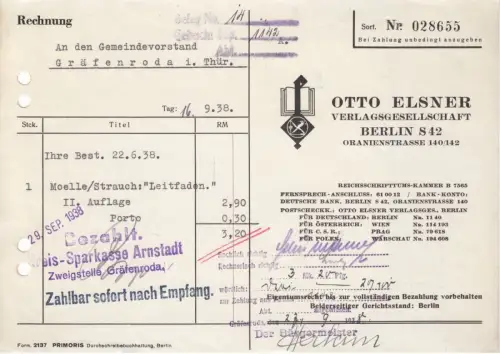 Rechnung
Sort. Nr. 028655
Bei Zahlung unbedingt anzugeben
An den Gemeindevorstand
Gräfenroda i. Thür.
Tag: 16. 9.38.
Stck. Titel RM
Ihre Best. 22.6.38.
1 Moelle/Strauch: "Leitfaden."
II. Auflage 2,90
Porto 0,30
3,20
29. SEP. 1938
Bezahlt.
Kreis-Sparkasse Arnstadt
Zweigstelle Gräfenroda.
Zahlbar sofort nach Empfang.
OTTO ELSNER
VERLAGSGESELLSCHAFT
BERLIN S 42
ORANIENSTRASSE 140/142
REICHSSCHRIFTTUMS-KAMMER B 7565
FERNSPRECH-ANSCHLUSS: 61 00 12 / BANK-KONTO:
DEUTSCHE BANK, BERLIN S 42, ORANIENSTRASSE 140
POSTSCHECKK.: OTTO ELSNER VERLAGSGES., BERLIN
FÜR DEUTSCHLAND: BERLIN Nr. 11 40
FÜR ÖSTERREICH: WIEN Nr. 114 193
FÜR C. S. R.: PRAG Nr. 79 618
FÜR POLEN: WARSCHAU Nr. 194 608
Sachlich richtig
Rechnerisch richtig
3 RM 20
Eigentumsrecht bis zur vollständigen Bezahlung vorbehalten
Beiderseitiger Gerichtsstand: Berlin
Gräfenroda, 22. 9. 1938
Der Bürgermeister
Form. 2137 PRIMORIS Durchschreibebuchhaltung, Berlin